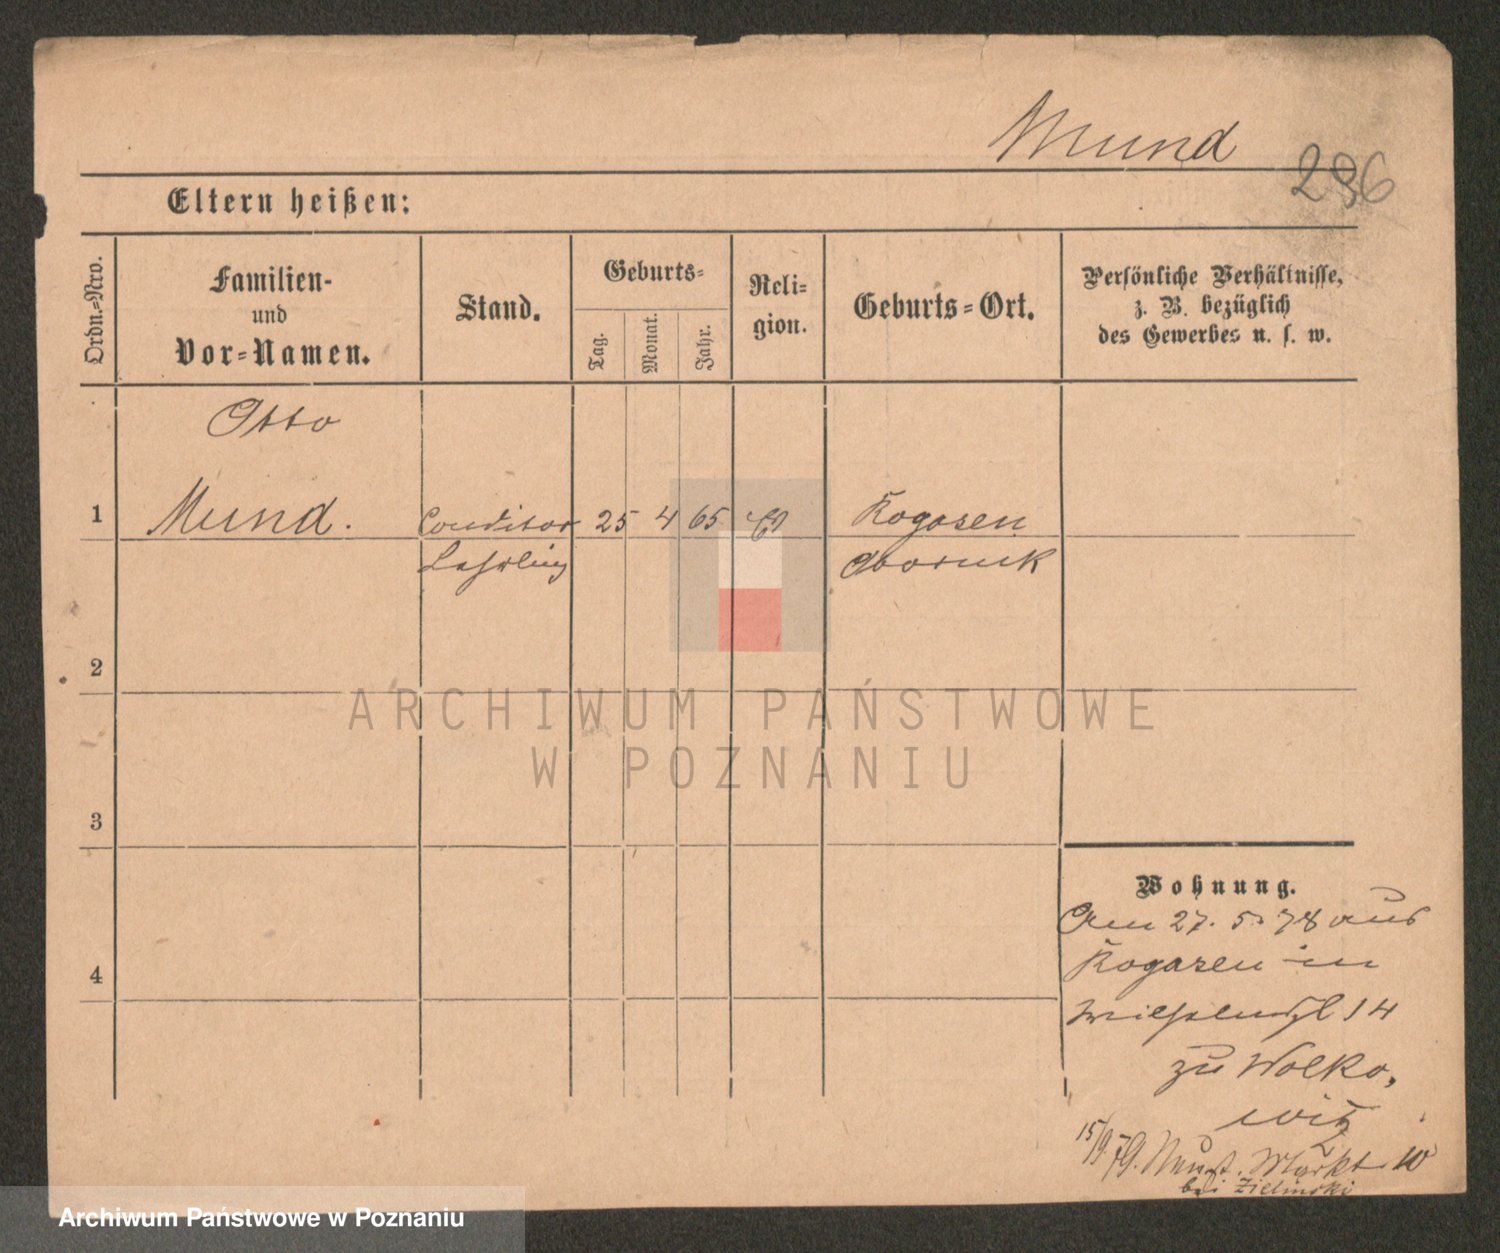 Mund
296
Eltern heißen:
Ordn.-Nro.
Familien-
und
Vor-Namen.
Stand.
Geburts-
Tag.
Monat.
Jahr.
Reli-
gion.
Geburts-Ort.
Persönliche Verhältnisse,
z. B. bezüglich
des Gewerbes u. s. w.
Otto
1 Mund. Conditor 25 4 65 Rogasen
Lehrling Obornik
2
ARCHIWUM PAŃSTWOWE
W POZNANIU
3
Wohnung.
Am 27. 5. 78 aus
Rogasen in
4
Wilhelmspl 14
zu Wolko,
witz
15/9 79. Neust. Markt 10
bei Zielinski
Archiwum Państwowe w Poznaniu